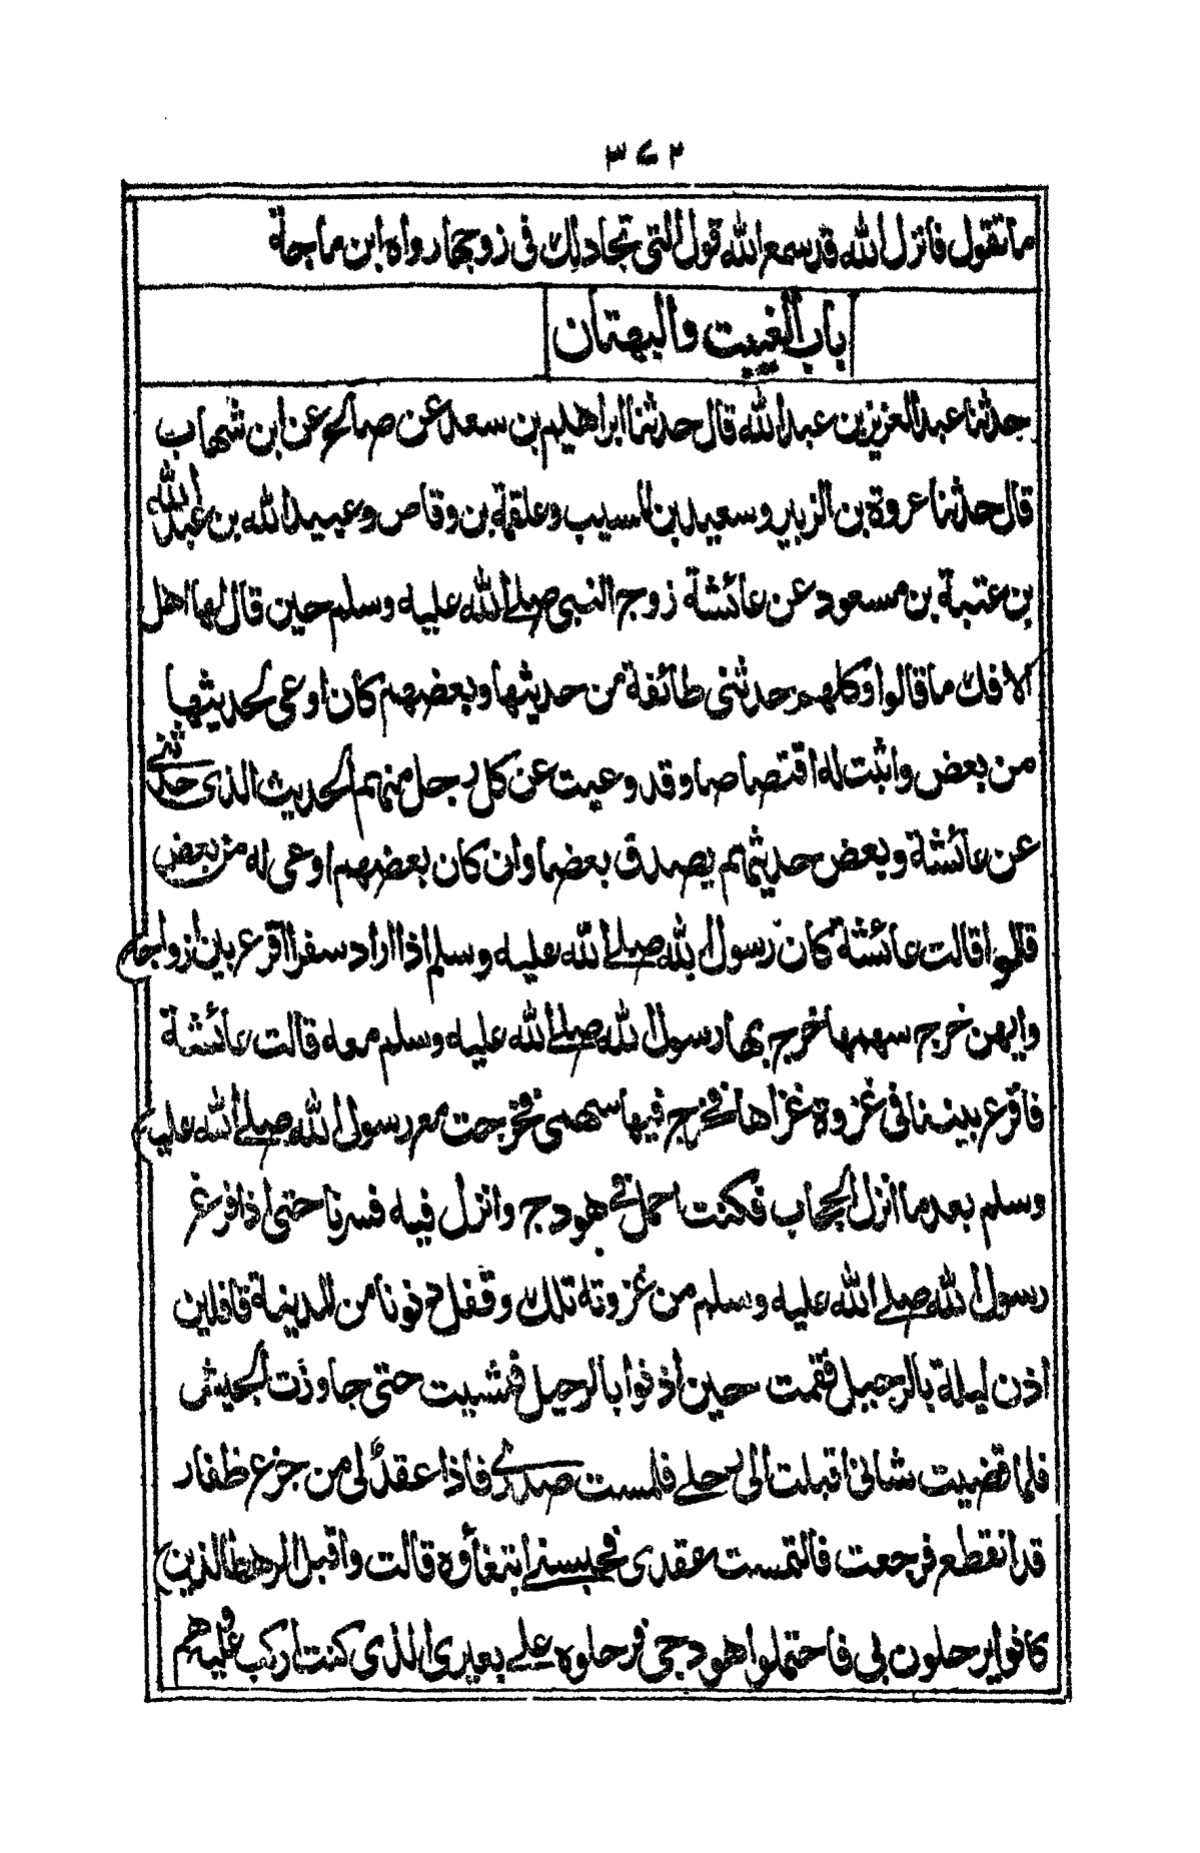 ٣٧٢
ما تقول فانزل الله قد سمع الله قول التي تجادلك في زوجها رواه ابن ماجة
باب الغيبت والبهتان
حدثنا عبد العزيز بن عبد الله قال حدثنا ابراهيم بن سعد عن صالح عن ابن شهاب
قال حدثنا عروة بن الزبير وسعيد بن المسيب وعلقمة بن وقاص وعبيد الله بن عبد الله
بن عتبة بن مسعود عن عائشة زوج النبي صلے الله عليه وسلم حين قال لها اهل
الافك ما قالوا وكلهم حدثني طائفة من حديثها وبعضهم كان اوعى لحديثها
من بعض واثبت له اقتصاصا وقد وعيت عن كل رجل منهم الحديث الذي حدثني
عن عائشة وبعض حديثهم يصدق بعضا وان كان بعضهم اوعى له من بعض
قالوا قالت عائشة كان رسول الله صلے الله عليه وسلم اذا اراد سفرا اقرع بين ازواجه
وايهن خرج سهمها خرج بها رسول الله صلے الله عليه وسلم معه قالت عائشة
فاقرع بيننا في غزوة غزاها فخرج فيها سهمي فخرجت مع رسول الله صلے الله عليه
وسلم بعد ما انزل الحجاب فكنت احمل في هودج وانزل فيه فسرنا حتى اذا فرغ
رسول الله صلے الله عليه وسلم من غزوته تلك وقفل دنونا من المدينة قافلين
اذن ليلة بالرحيل فقمت حين اذنوا بالرحيل فمشيت حتى جاوزت الجيش
فلما قضيت شاني اقبلت الى رحلے فلمست صدري فاذا عقد لي من جزع ظفار
قد انقطع فرجعت فالتمست عقدي فحبسني ابتغاؤه قالت واقبل الرهط الذين
كانوا يرحلون بي فاحتملوا هودجي فرحلوه علے بعيري الذي كنت اركب عليه وهم